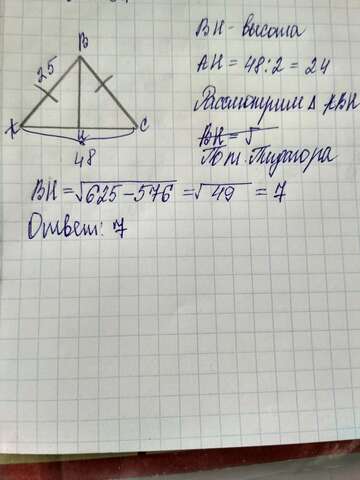 BH - высота
B
25
AH = 48:2 = 24
Рассмотрим Δ ABH
A H C
BH = √
48
По т. Пифагора
BH = √625 - 576 = √49 = 7
Ответ: 7